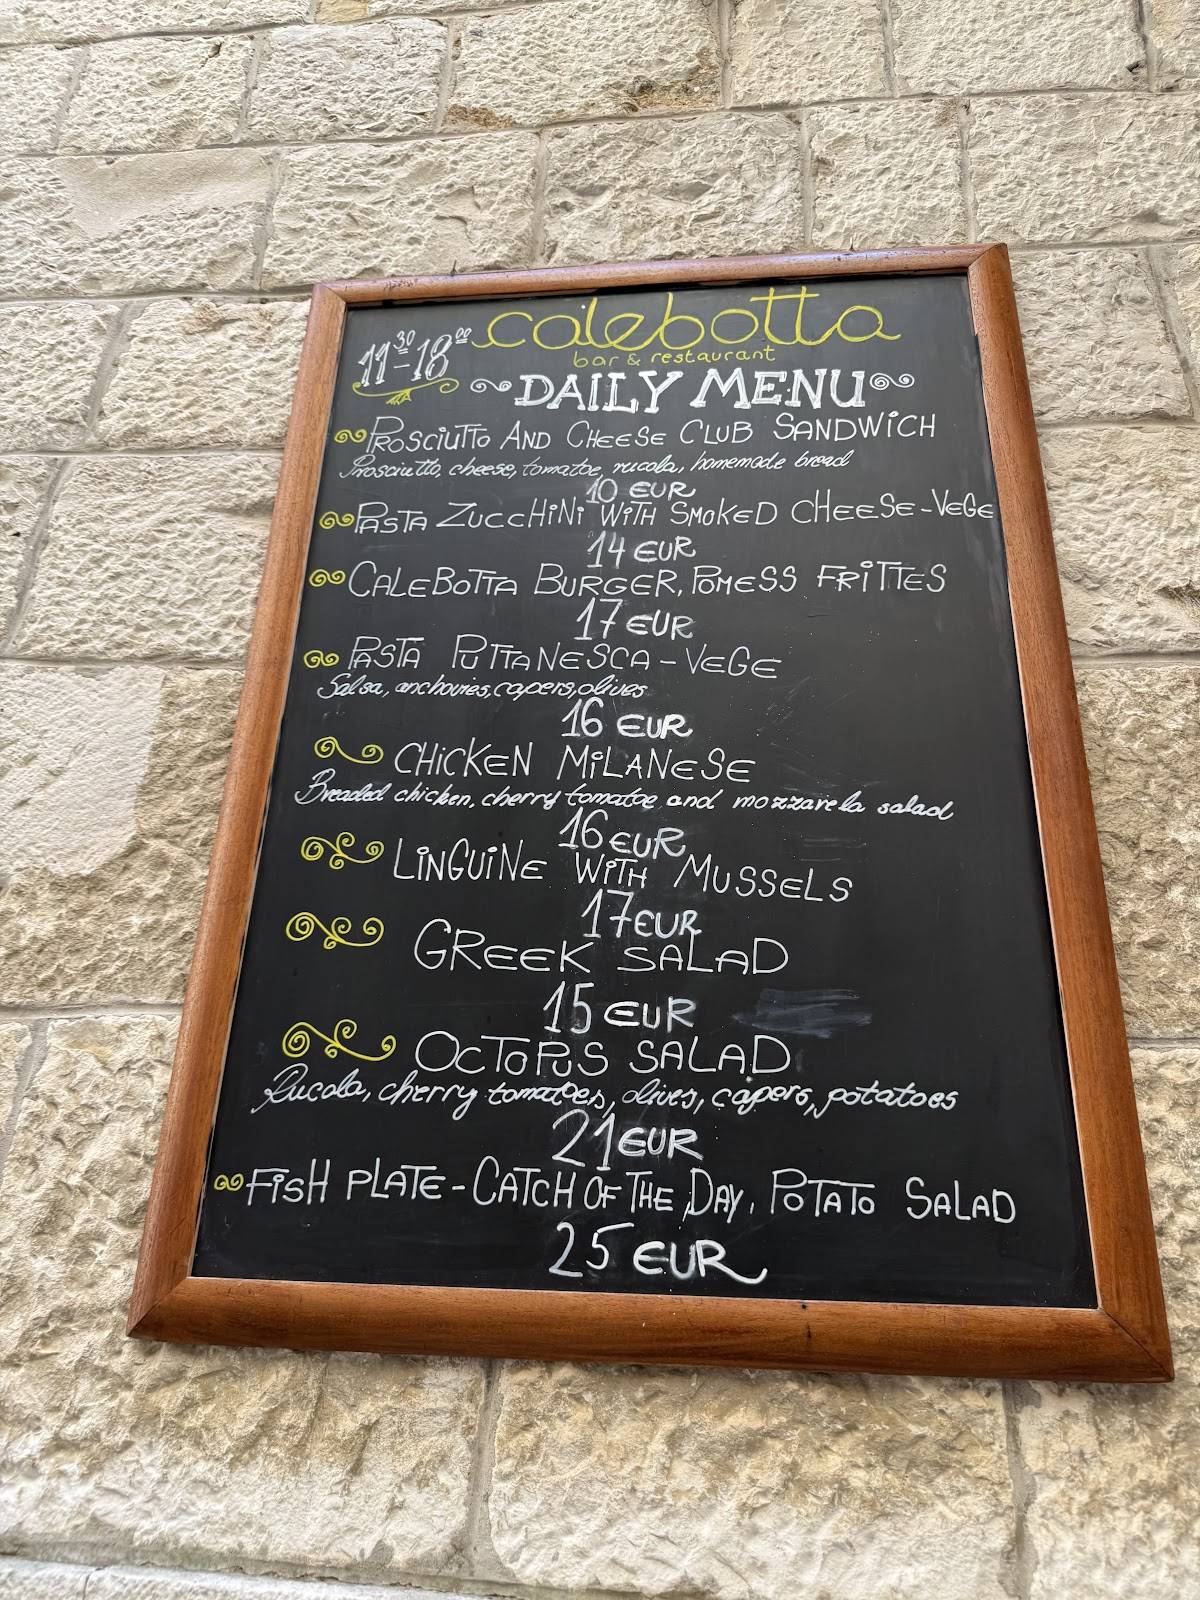 calebotta
11³⁰-18⁰⁰
bar & restaurant
DAILY MENU
PROSCIUTTO AND CHEESE CLUB SANDWICH
Prosciutto, cheese, tomatoe, rucola, homemade bread
10 EUR
PASTA ZUCCHINI WITH SMOKED CHEESE-VEGE
14 EUR
CALEBOTTA BURGER, POMESS FRITTES
17 EUR
PASTA PUTTANESCA-VEGE
Salsa, anchovies, capers, olives
16 EUR
CHICKEN MILANESE
Breaded chicken, cherry tomatoe and mozzarela salad
16 EUR
LINGUINE WITH MUSSELS
17 EUR
GREEK SALAD
15 EUR
OCTOPUS SALAD
Rucola, cherry tomatoes, olives, capers, potatoes
21 EUR
FISH PLATE-CATCH OF THE DAY, POTATO SALAD
25 EUR